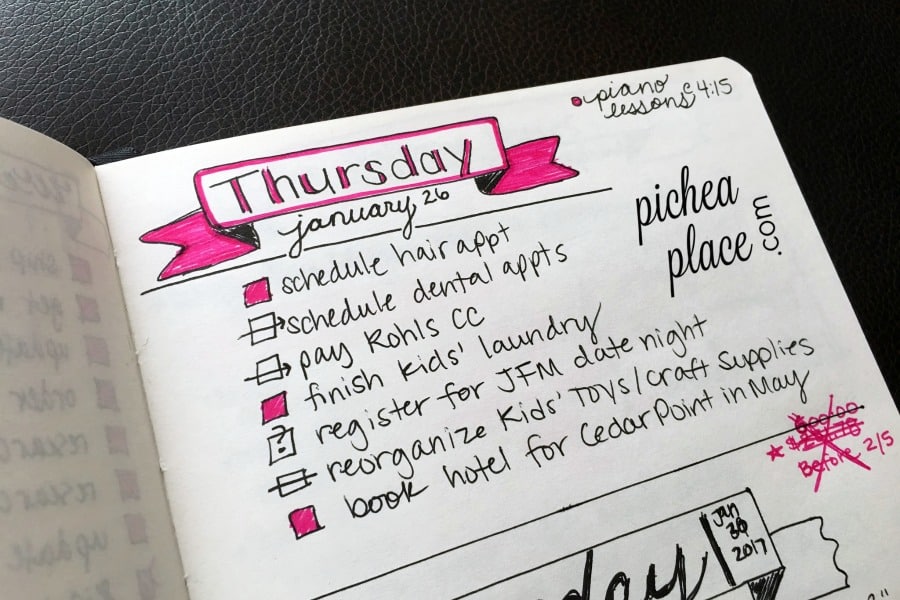 piano
lessons @ 4:15
Thursday
january 26
pichea
place
.com
schedule hair appt
schedule dental appts
pay Kohls CC
finish kids' laundry
register for JFM date night
?
reorganize kids' toys/craft supplies
book hotel for Cedar Point in May
Before 2/5
day
Jan
2017